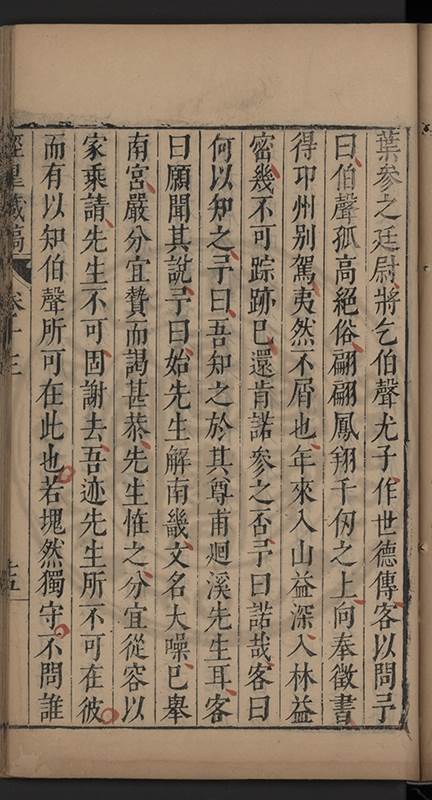 葉參之廷尉將乞伯聲尤子作世德傳客以問予
曰伯聲孤高絕俗翩翩鳳翔千仞之上向奉徵書
得卭州别駕夷然不屑也年來入山益深入林益
密幾不可踪跡已還肯諾參之否予曰諾哉客曰
何以知之予曰吾知之於其尊甫迴溪先生耳客
曰願聞其說予曰始先生解南畿文名大噪已舉
南宮嚴分宜贄而謁甚恭先生恠之分宜從容以
家乘請先生不可固謝去吾迹先生所不可在彼
而有以知伯聲所可在此也若塊然獨守不問誰
藏稿 卷十三
十五